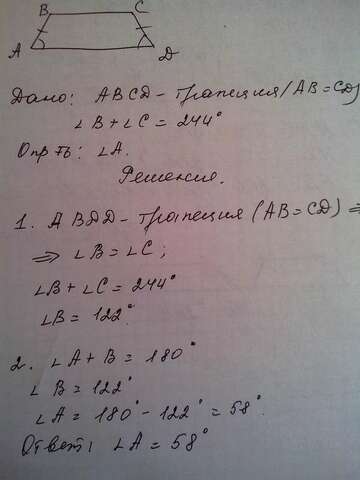 B C
A D
Дано: ABCD - трапеция (AB=CD)
∠B+∠C=244°
Опр-ть: ∠A.
Решение.
1. ABDD - трапеция (AB=CD) ⇒
⇒ ∠B=∠C;
∠B+∠C=244°
∠B=122°.
2. ∠A+B=180°
∠B=122°
∠A=180°-122°=58°.
Ответ: ∠A=58°